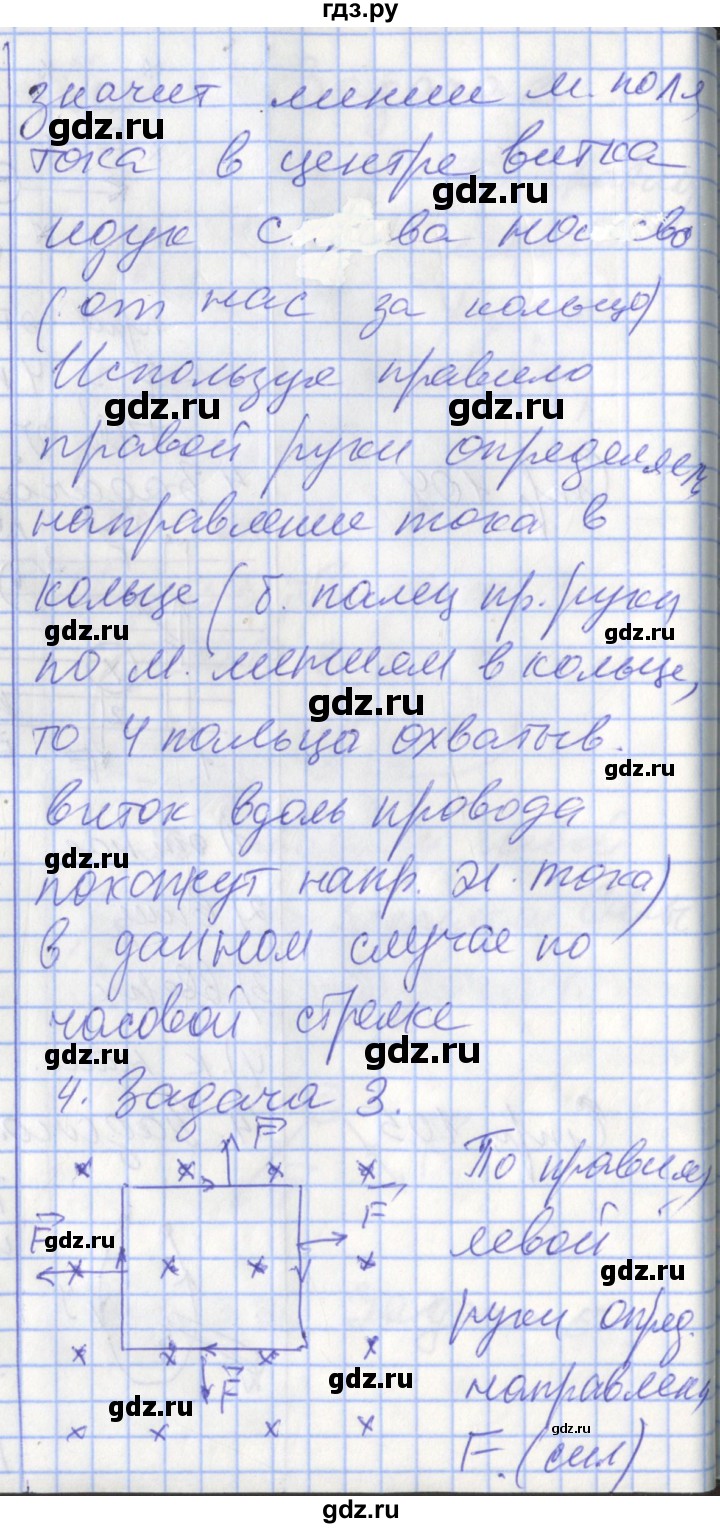 гдз.ру
значит линии м. поля
gdz.ru
тока в центре витка
gdz.ru
идук с ва на
(от нас за кольцо)
Используя правило
gdz.ru gdz.ru
правой руки определяем
направление тока в
кольце ( б. палец пр. руки
gdz.ru gdz.ru
по м. линиям в кольце,
gdz.ru
то 4 пальца охватыв.
gdz.ru
виток вдоль провода
gdz.ru
покажут напр. эл. тока)
в данном случае по
часовой стрелке
gdz.ru gdz.ru
4. Задача 3.
F
По правилу
F F
gdz.ru
левой
gdz.ru
руки опред.
F
gdz.ru
направлени
gdz.ru
gdz.ru
F. (сил)
gdz.ru